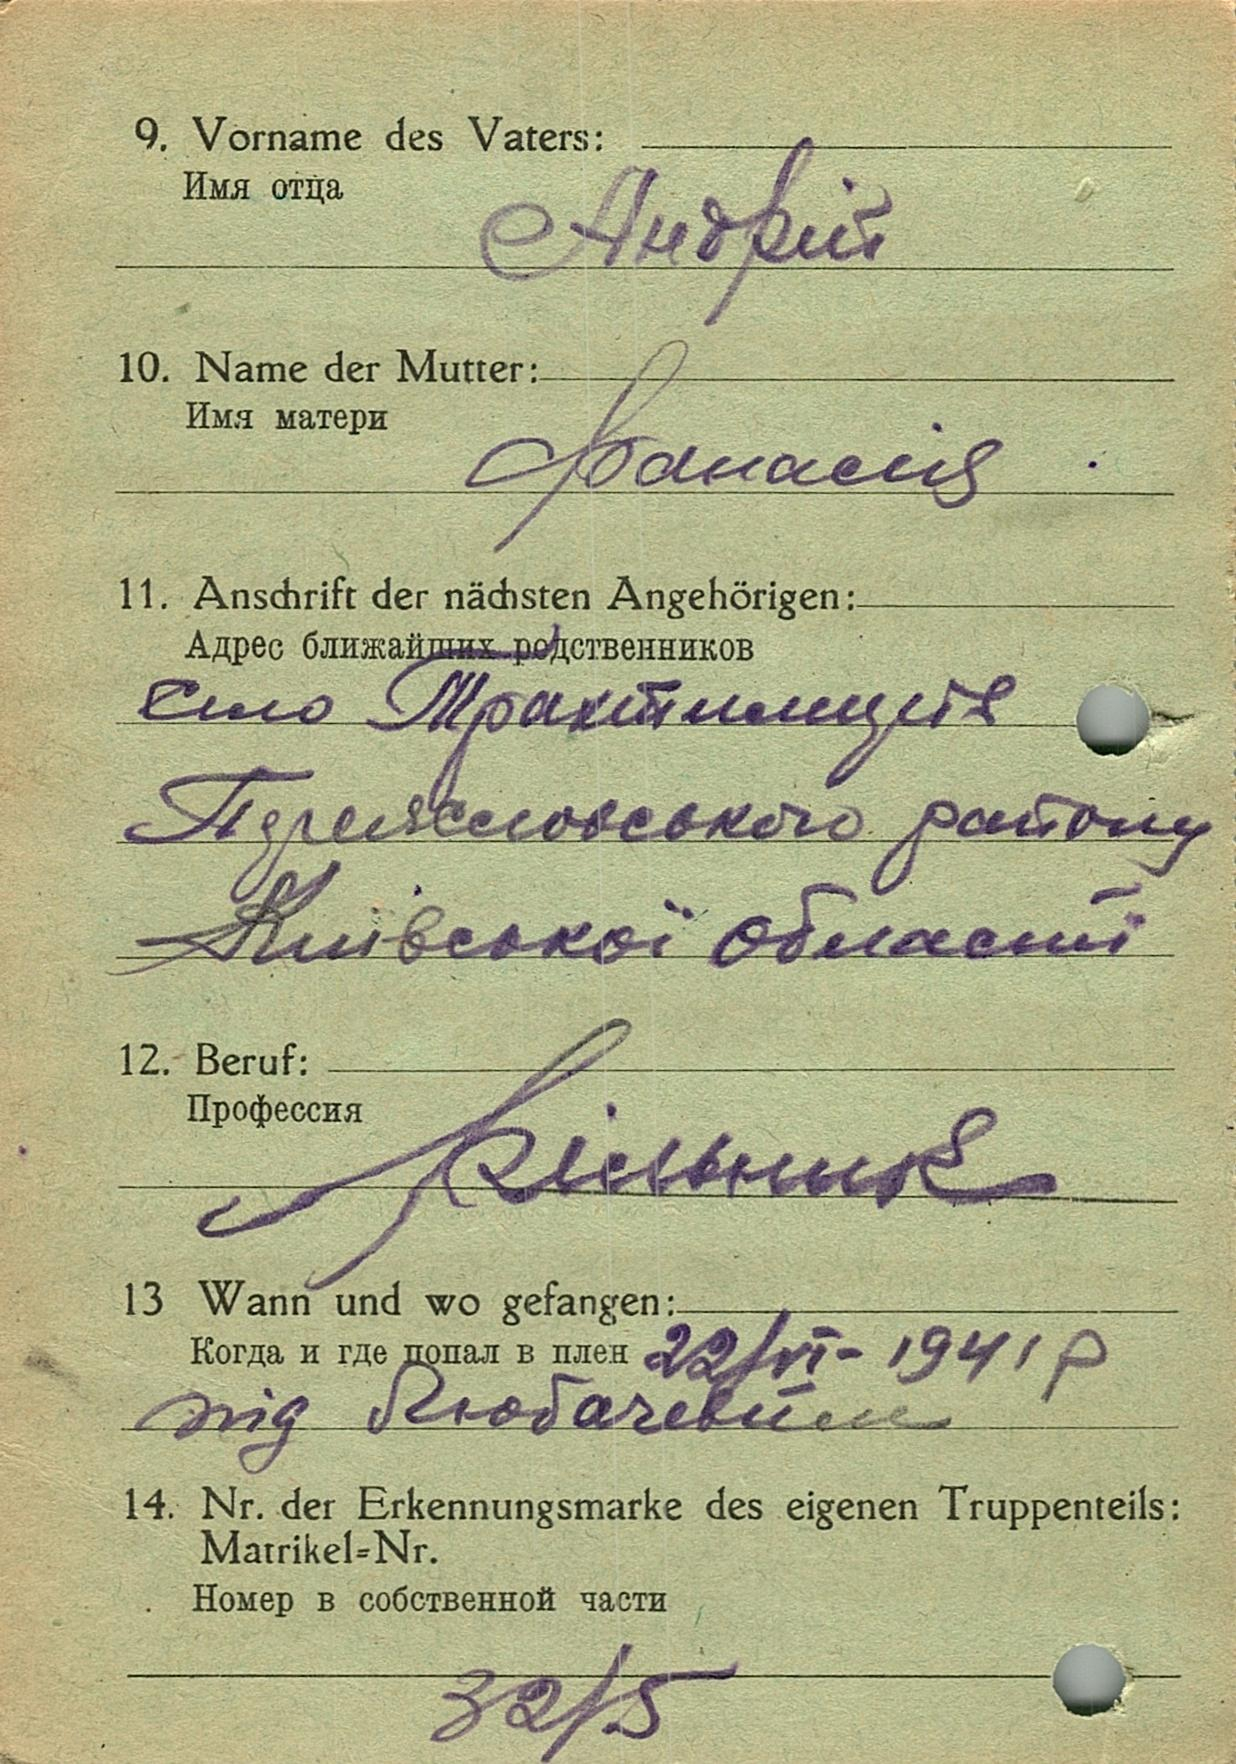 9. Vorname des Vaters:
Имя отца
Андрій
10. Name der Mutter:
Имя матери
11. Anschrift der nächsten Angehörigen:
Адрес ближайших родственников
село
району
Київської області
12. Beruf:
Профессия
13 Wann und wo gefangen:
Когда и где попал в плен 22/VI - 1941 р
під
14. Nr. der Erkennungsmarke des eigenen Truppenteils:
Matrikel=Nr.
Номер в собственной части
32/5